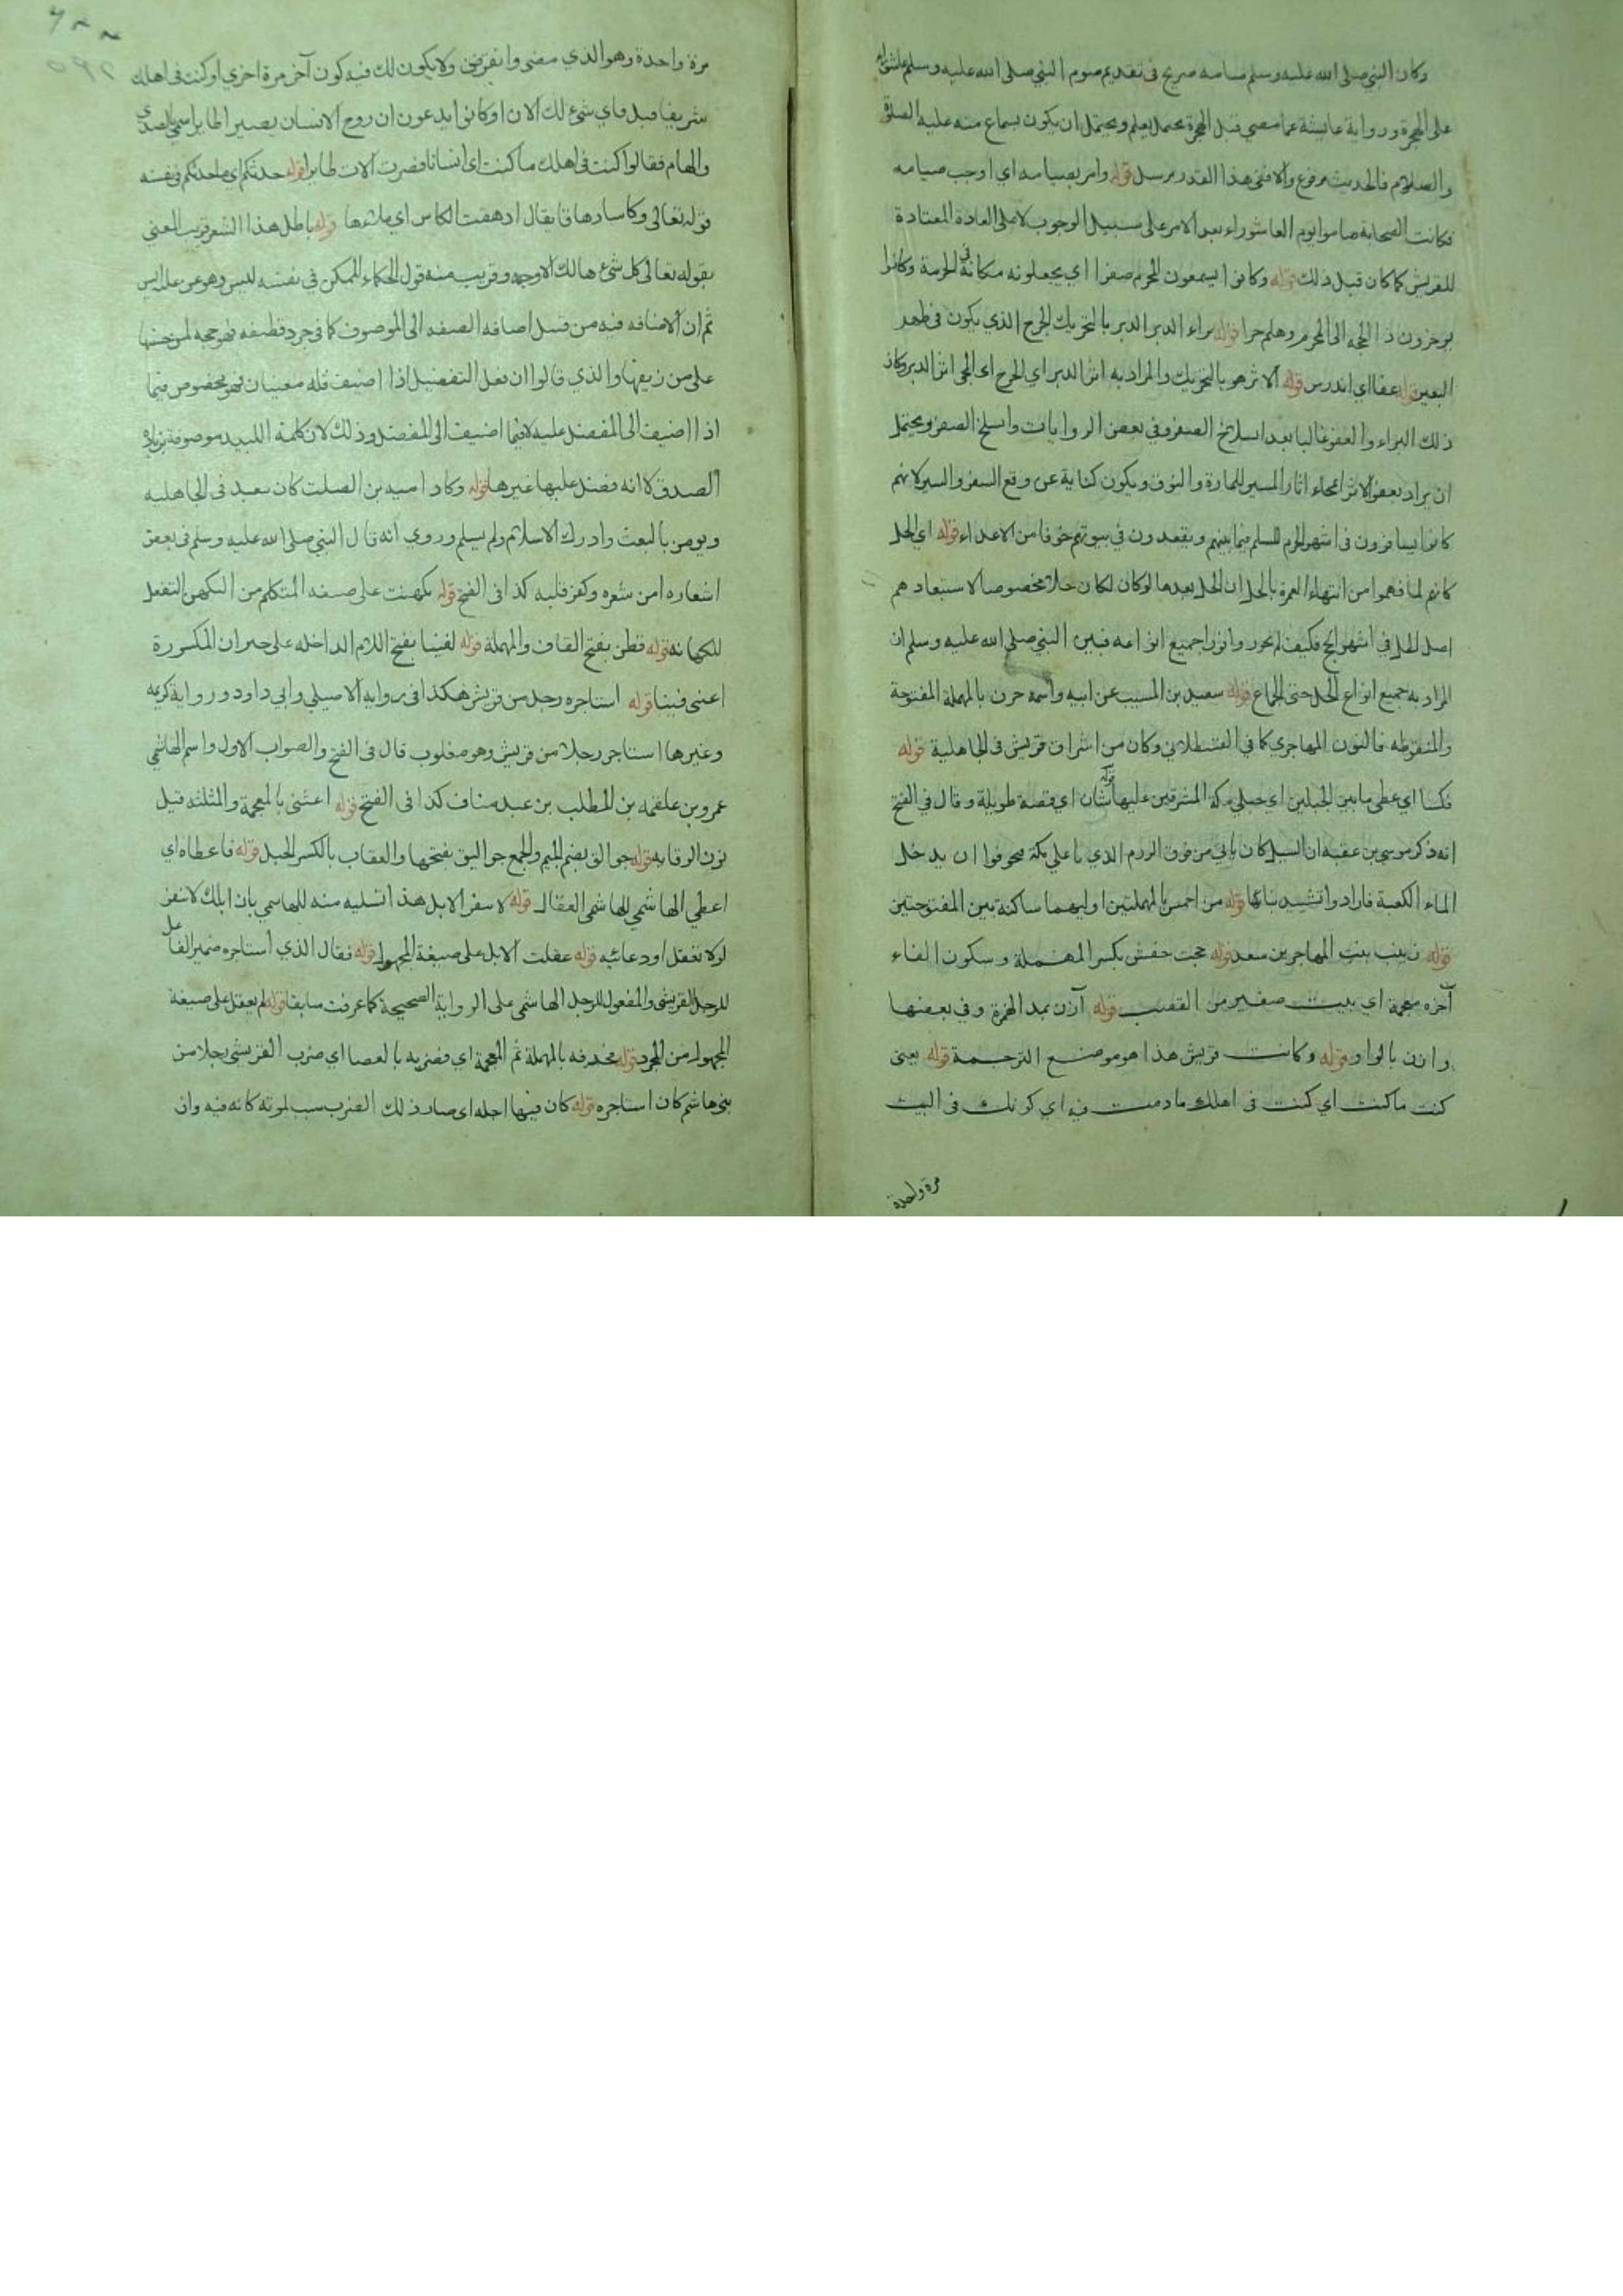 وكان النبي صلى الله عليه وسلم صامه صريح في تقديم صوم النبي صلى الله عليه وسلم عاشوراء
على الهجرة ورواية عايشة عما مضى قبل الهجرة يحتمل يعلم ويحتمل ان يكون بسماع منه عليه الصلوة
والسلام فالحديث مرفوع والا ففي هذا القدر مرسل قوله وامر بصيامه اي اوجب صيامه
فكانت الصحابة صاموا يوم العاشوراء بعد الامر على سبيل الوجوب لا على العادة المعتادة
للقريش كما كان قبل ذلك قوله وكانوا يسمون المحرم صفرا اي يجعلونه مكانه في الحرمة وكانوا
يوخرون ذا الحجه الى المحرم وهلم جرا قوله براء الدبر الدبر بالتحريك الجرح الذي يكون في ظهر
البعير قوله عفا اي اندرس قوله الاثر هو بالتحريك والمراد به اثر الدبر اي الجرح اي انمحى اثر الدبر وكان
ذلك البراء والعفو غالبا بعد انسلاخ الصفر وفي بعض الروايات وانسلخ الصفر ويحتمل
ان يراد بعفو الاثر امحاء اثار المسير للمارة والنوق ويكون كناية عن وقع السفر والسير لانهم
كانوا يسافرون في اشهر الحرم للسلم فيما بينهم ويقعدون في بيوتهم خوفا من الاعداء قوله اي الحل
كانهم لما فهموا من انتهاء العمرة بالحل ان الحل بعدها لو كان لكان حلا مخصوصا لاستبعادهم
اصل الحل في اشهر الحج فكيف لم يجوزوا انواع جميع انواعه فبين النبي صلى الله عليه وسلم ان
المراد به جميع انواع الحل حتى الجماع قوله سعيد بن المسيب عن ابيه واسمه حزن بالمهملة المفتوحة
والمنقوطه فالنون المهاجري كما في القسطلاني وكان من اشراف قريش في الجاهلية قوله
فكسا اي غطى ما بين الجبلين اي جبلي مكة المشرفين عليها قوله شان اي قصة طويلة وقال في الفتح
انه ذكر موسى بن عقبة ان السيل كان ياتي من فوق الردم الذي باعلى مكة فتخوفوا ان يدخل
الماء الكعبة فارادوا تشييد بنائها قوله من احمس بالمهملتين اوليهما ساكنة بين المفتوحتين
قوله زينب بنت المهاجر بن سعد قوله حجت حفش بكسر المهملة وسكون الفاء
آخره معجمة اي بيت صغير من القصب قوله آزن بمد الهمزة وفي بعضها
وازن بالواو قوله وكانت قريش هذا هو موضع الترجمة قوله يعنى
كنت ما كنت اي كنت في اهلك ما دمت فيه اي كونك في البيت
مرة واحدة
مرة واحدة وهو الذي مضى وانقرض ولا يكون لك فيه كون آخر مرة اخرى او كنت في اهلك
شريفا قبل فاي شئ لك الان او كانوا يدعون ان روح الانسان يصير الطاير اسمي بالصدى
والهام فقالوا كنت في اهلك ما كنت اي انسانا فصرت الان طايرا قوله حدثكم اي ما حدثكم في نفسه
قوله تعالى وكاسا دهاقا يقال ادهقت الكاس اي ملئها قوله باطل هذا الشعر قريب المعنى
بقوله تعالى كل شئ هالك الا وجهه وقريب منه قول الحكماء الممكن في نفسه ليس وهو عن علته ايس
ثم ان الاضافه فيه من قبيل اضافه الصفه الى الموصوف كما في جرد قطيفه فهو حجه لمن جسها
على من زيفها والذي قالوا ان فعل التفضيل اذا اضيف فله معنيان فهو مخصوص فيما
اذا اضيف الى المفضل عليه لا فيما اضيف الى المفضل وذلك لان كلمة اللبيد موصوفة بزيادة
الصدق لا انه فضل عليها غيرها قوله وكاد اميه بن الصلت كان يتعبد في الجاهليه
ويومن بالبعث وادرك الاسلام ولم يسلم وروي انه قال النبي صلى الله عليه وسلم في بعض
اشعاره امن شعره وكفر قلبه كذا في الفتح قوله تكهنت على صيغه المتكلم من التكهن التفعل
للكهانه قوله فطن بفتح القاف والمهملة قوله لفينا بفتح اللام الداخله على خبر ان المكسورة
اعنى فينا قوله استاجره رجل من قريش هكذا في رواية الاصيلي وابي داود ورواية كريمه
وغيرها استاجر رجلا من قريش وهو مقلوب قال في الفتح والصواب الاول واسم الهاشمي
عمرو بن علقمه بن المطلب بن عبد مناف كذا في الفتح قوله اغثني بالمعجمة والمثلثه قبل
نون الوقايه قوله جوالق بضم الجيم والجمع جواليق بفتحها والعقاب بالكسر الحبل قوله فاعطاه اي
اعطي الهاشمي للهاشمي العقال قوله لا تنفر الابل هذا تسليه منه للهاشمي بان ابلك لا تنفر
لو لا تعقل او دعائيه قوله عقلت الابل على صيغة المجهول قوله فقال الذي استاجره ضمير الفاعل
للرجل القريشي والمفعول للرجل الهاشمي على الرواية الصحيحة كما عرفت سابقا قوله لم يعقل على صيغة
المجهول من المجرد قوله فحذفه بالمهملة ثم المعجمة اي فضربه بالعصا اي ضرب القريشي رجلا من
بني هاشم كان استاجره قوله كان فيها اجله اي صار ذلك الضرب سبب لموته كانه فيه وان